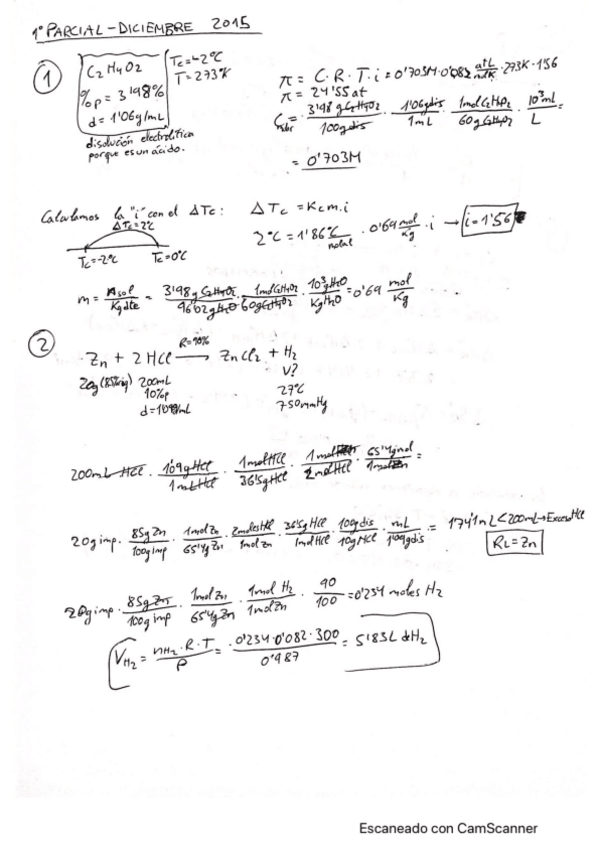 1º PARCIAL - DICIEMBRE 2015
1
C2H4O2
%p = 3'98%
d = 1'06g/mL
Tc = -2ºC
T = 273ºK
disolución electrolítica
porque es un ácido.
π = C·R·T·i = 0'703M·0'082 atL/molK · 273K·1'56
π = 24'55 at
C = 3'98 g C2H4O2/100g dis · 1'06g dis/1mL · 1mol C2H4O2/60g C2H4O2 · 10³mL/L =
= 0'703M
Calculamos la "i" con el ΔTc: ΔTc = Kc m.i
ΔTc=2ºC
Tc=-2ºC Tc=0ºC
2ºC = 1'86 ºC/molal · 0'69 mol/kg · i → i = 1'56
m = nsol/Kg dte = 3'98 g C2H4O2/96'02g H2O · 1mol C2H4O2/60g C2H4O2 · 10³g H2O/Kg H2O = 0'69 mol/Kg
2
Zn + 2 HCl R=90% → ZnCl2 + H2
20g (85% riq) 200mL V?
10%p 27ºC
d=1'09g/mL 750mmHg
200mL HCl · 1'09g HCl/1mL HCl · 1mol HCl/36'5g HCl · 1mol/2mol HCl · 65'4g mol/1mol Zn =
20g imp. · 85g Zn/100g imp · 1mol Zn/65'4g Zn · 2moles HCl/1mol Zn · 36'5g HCl/1mol HCl · 100g dis/10g HCl · mL/1'09g dis = 174'1mL < 200mL → Exceso HCl
RL = Zn
20g imp · 85g Zn/100g imp · 1mol Zn/65'4g Zn · 1mol H2/1mol Zn · 90/100 = 0'234 moles H2
VH2 = nH2·R·T/P = 0'234·0'082·300/0'987 = 5'83L d H2
Escaneado con CamScanner